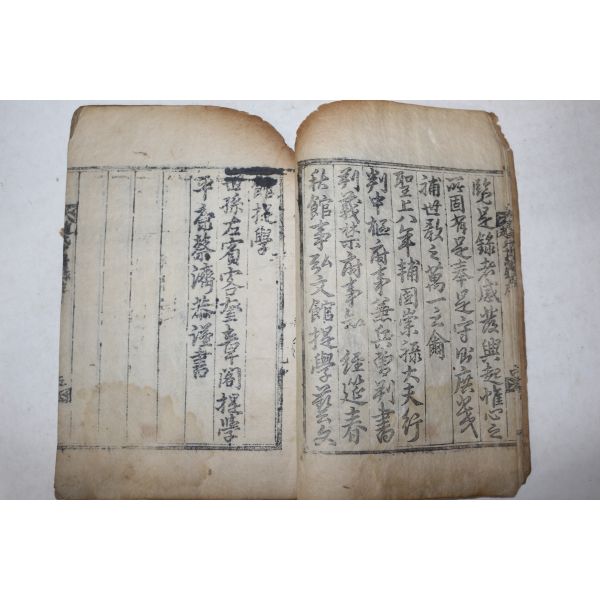 覽是錄者感舊興起惟心之
所固有是奉是守則庶幾
補世敎之萬一云爾
聖上八年輔國崇祿大夫行
判中樞府事兼兵曹判書
判義禁府事知 經筵春
秋館事弘文館提學藝文
館提學
世孫左賓客奎章閣提學
平康蔡濟恭謹書